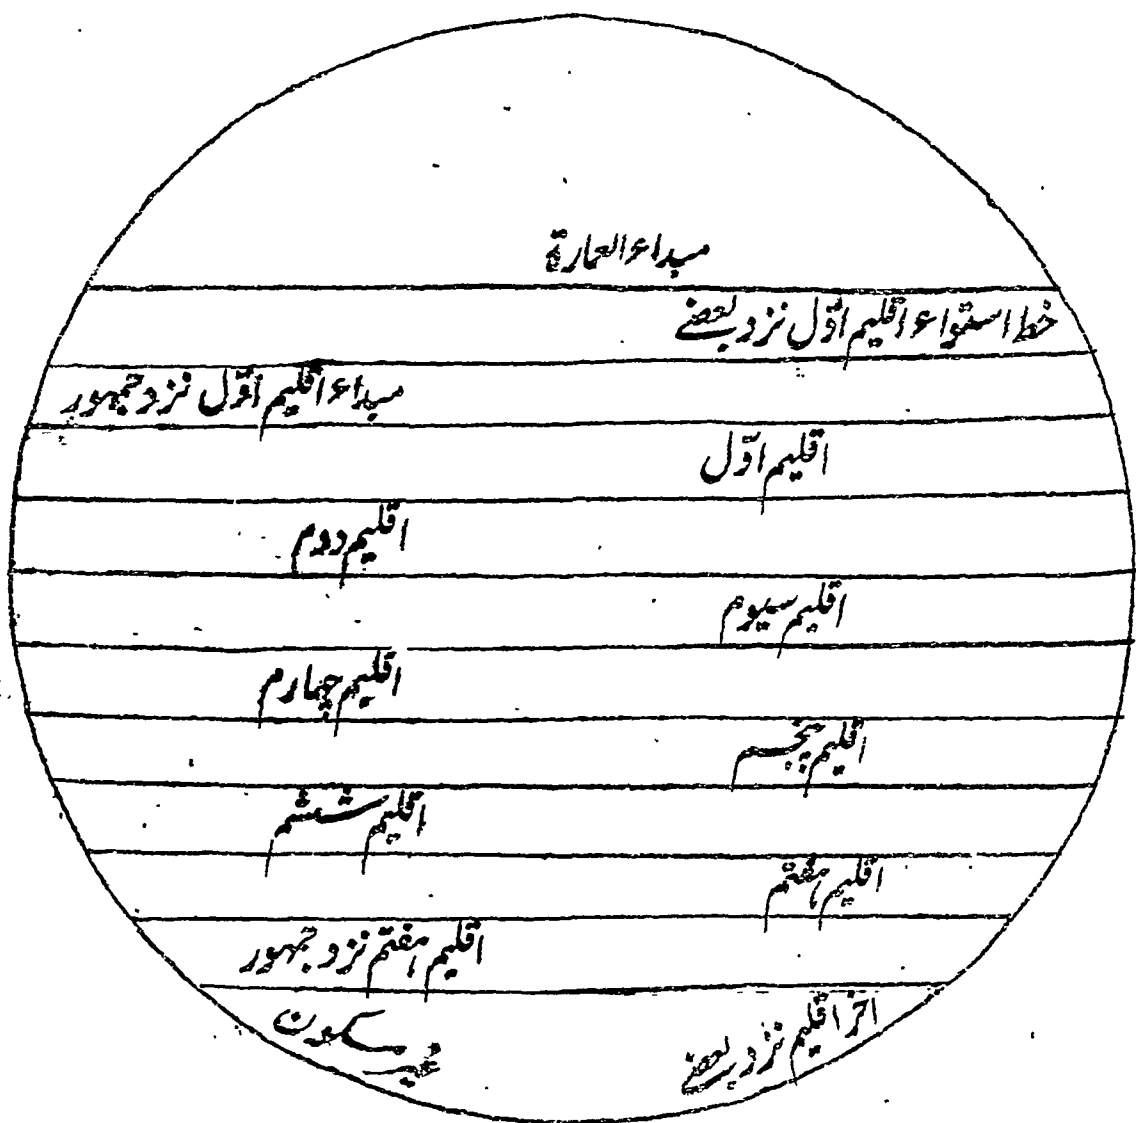 مبداء العمارة
خط استواء اقلیم اوّل نزد بعضے
مبداء اقلیم اوّل نزد جمہور
اقلیم اوّل
اقلیم دوم
اقلیم سیوم
اقلیم چہارم
اقلیم پنجم
اقلیم ششم
اقلیم ہفتم
اقلیم ہفتم نزد جمہور
اخر اقلیم نزد بعضے
غیر مسکون